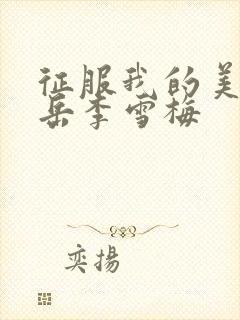 征服我的美
岳李雪梅
奕揚